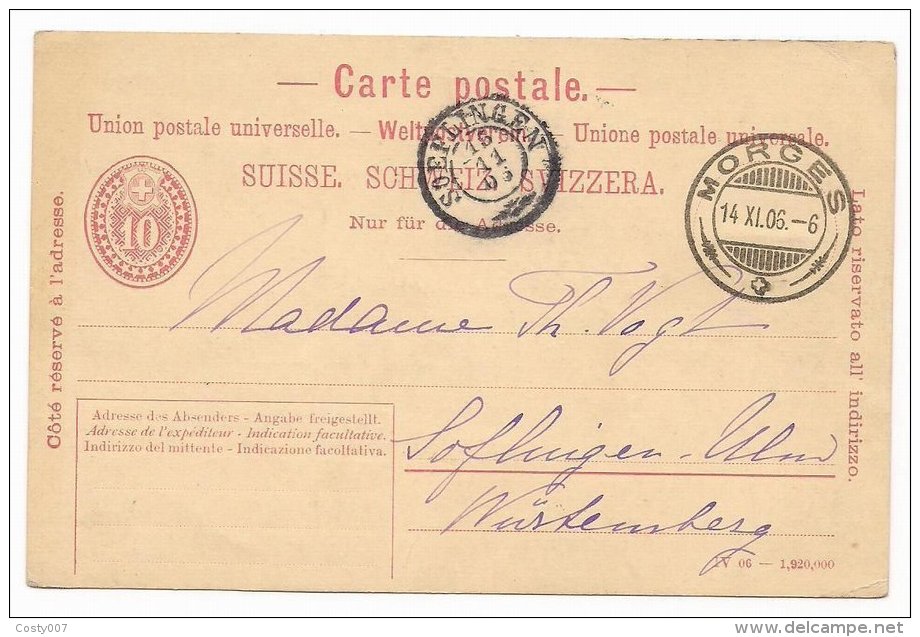 — Carte postale. —
Union postale universelle. — Weltpostverein. — Unione postale universale.
SUISSE. SCHWEIZ. SVIZZERA.
Nur für die Adresse.
10
SOEFLINGEN
15
11
MORGES
14 XI.06.–6
Côté réservé à l'adresse.
Lato riservato all' indirizzo.
Madame Th. Vogt
Soflingen-Ulm
Würtemberg
Adresse des Absenders - Angabe freigestellt.
Adresse de l'expéditeur - Indication facultative.
Indirizzo del mittente - Indicazione facoltativa.
IV 06 — 1,920,000
Costy007
delcampe.net